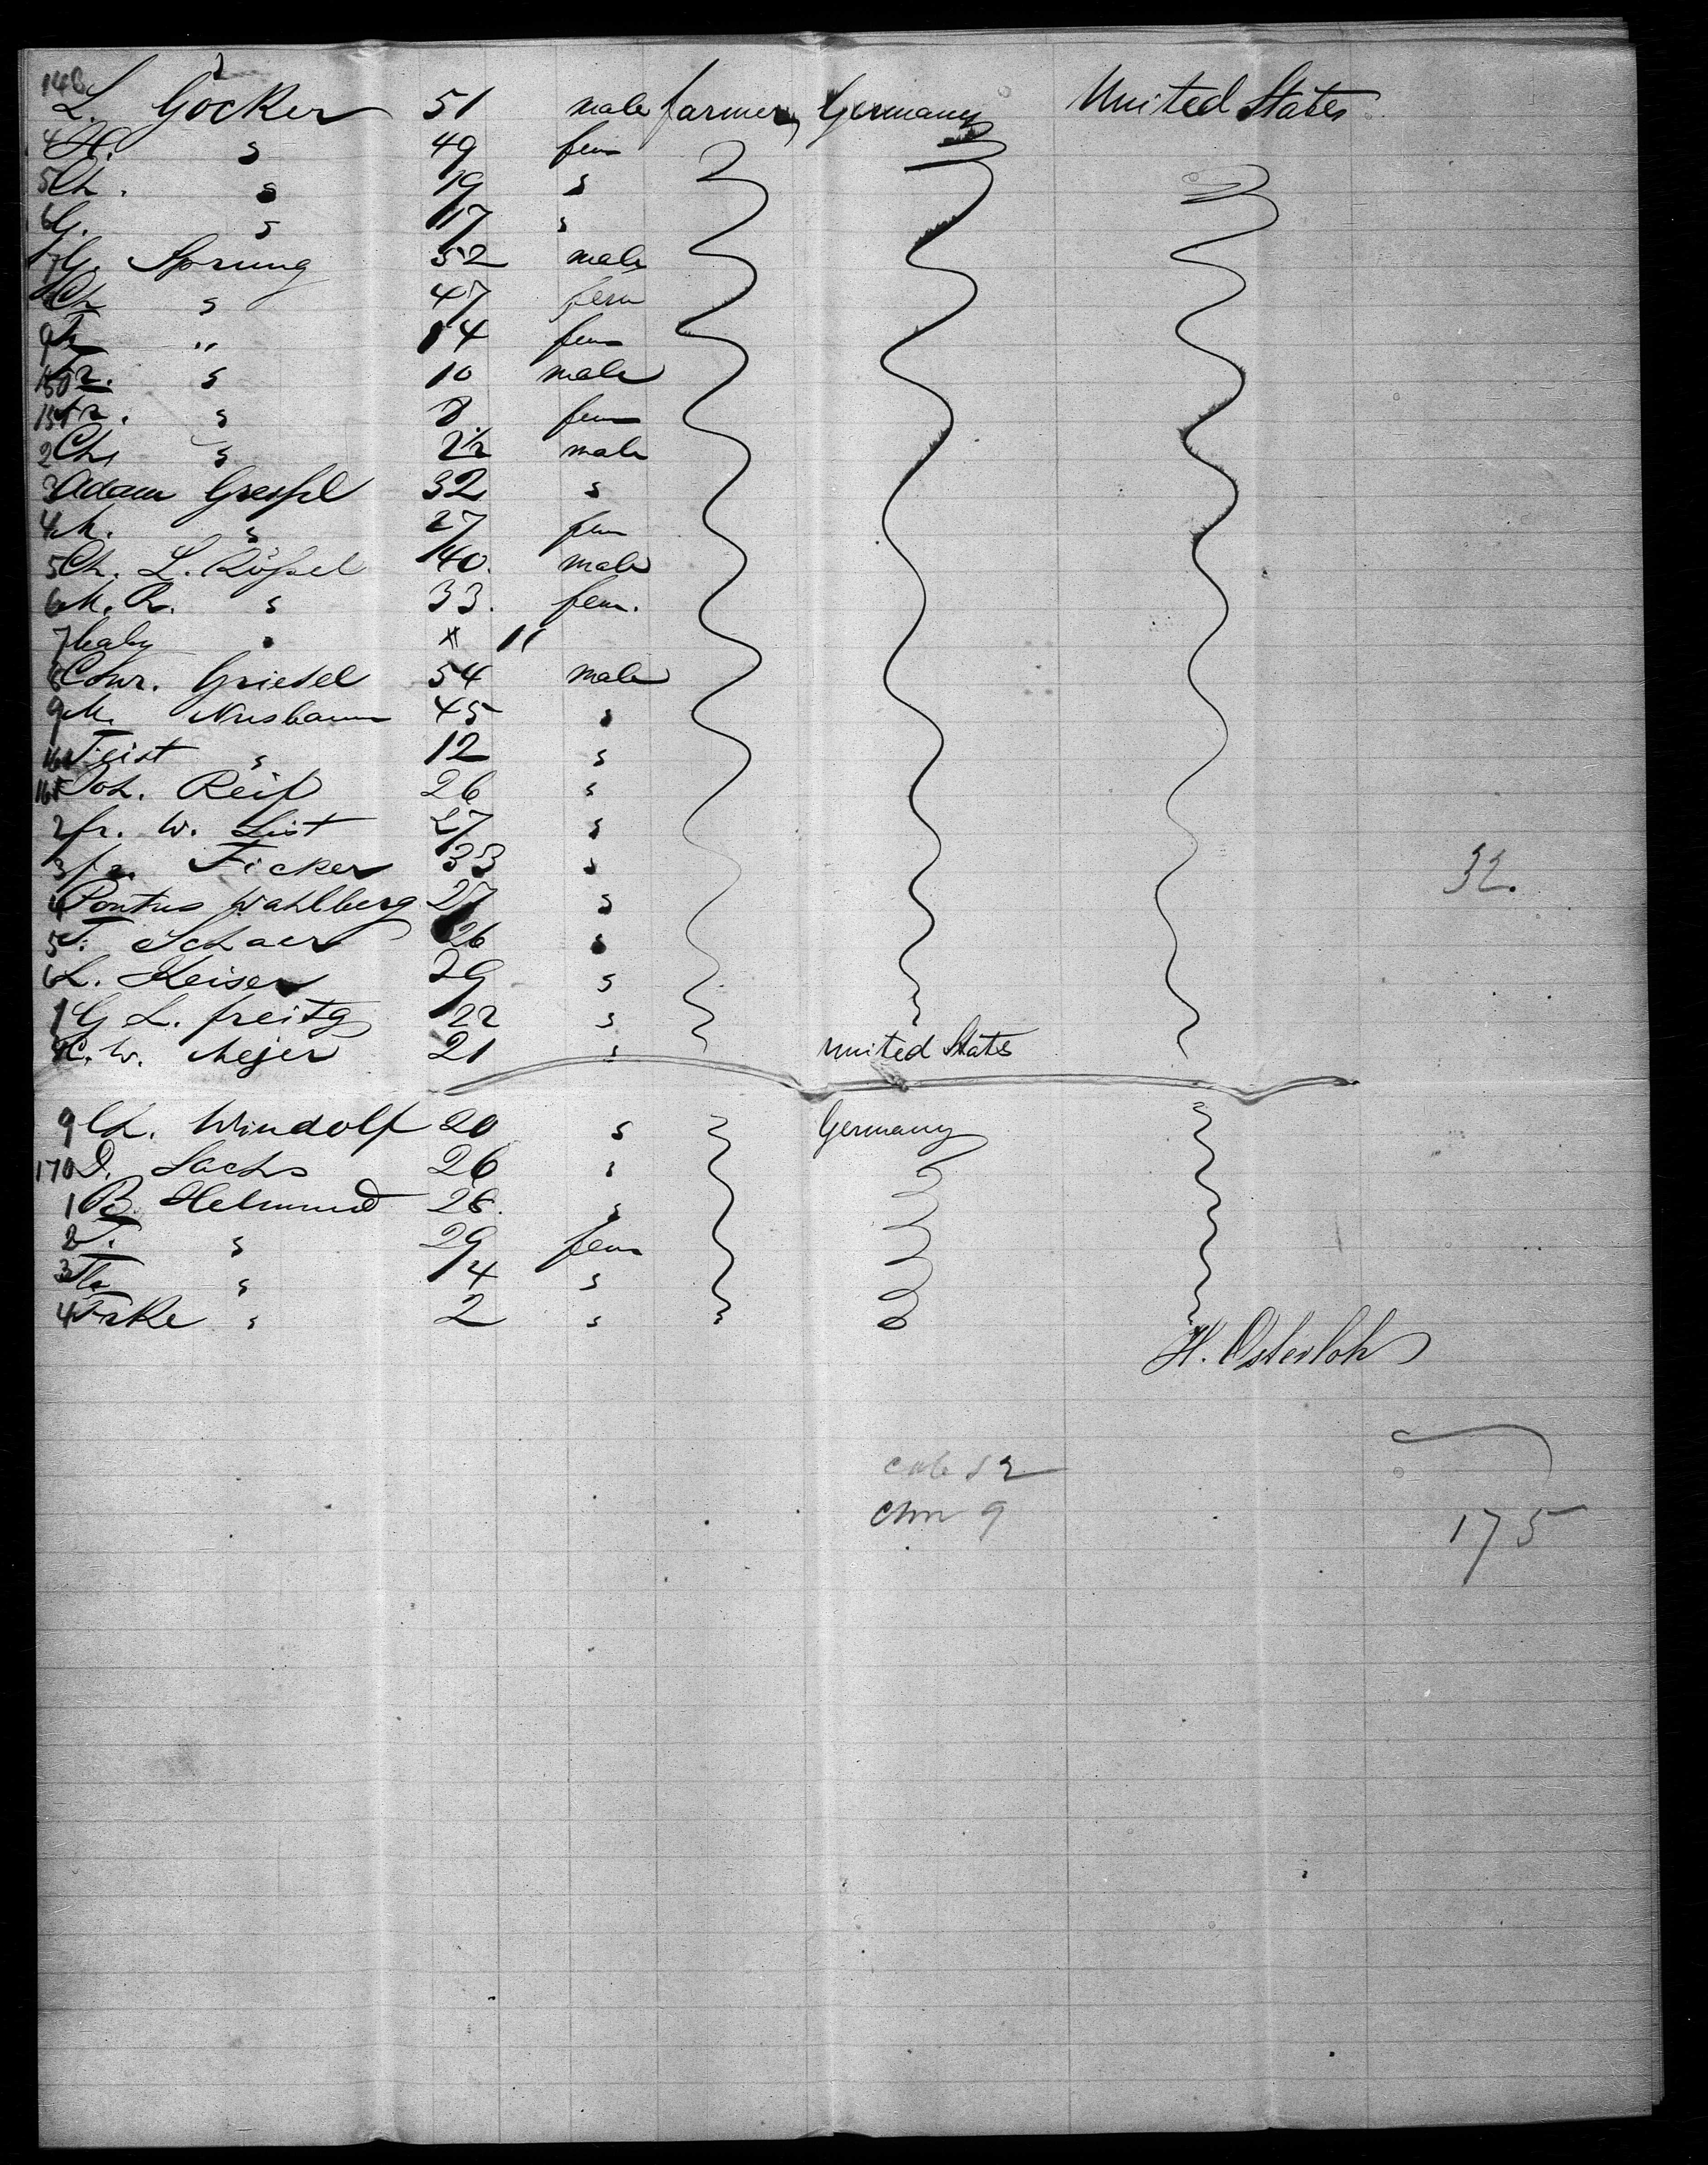 L. Göcker 51 male farmer, Germany United States
4 A. s 49 fem
5 Ch. s 19 s
6 G. s 17 s
7 G. Sprung 52 male
Ch s 47 fem
9 " 14 fem
150 Fr. s 10 male
151 Fr. s 8 fem
2 Ch. s 2½ male
3 Adam 32 s
4 M. s 27 fem
5 Ch. L. Rößel 40. male
6 M. R. s 33. fem.
7 baby " "
8 Conr. Griesel 54 male
9 M. Nusbaum 45 s
160 Feist s 12 s
161 Joh. Reif 26 s
2 fr. W. List 27 s
3 Ficker 33 s
4 Pontus Wahlberg 27 s
5 F. Schaer 26 s
6 L. Keiser 29 s
7 G L. freitg 22 s
W. Mejer 21 s United States
9 Ch. Windolf 20 s Germany
170 D. Sachs 26 s
1 B. Helmund 28. s
2 F. s 29 fem
3 s 4 s
4 s 2 s
H. Osterloh
32.
9
175